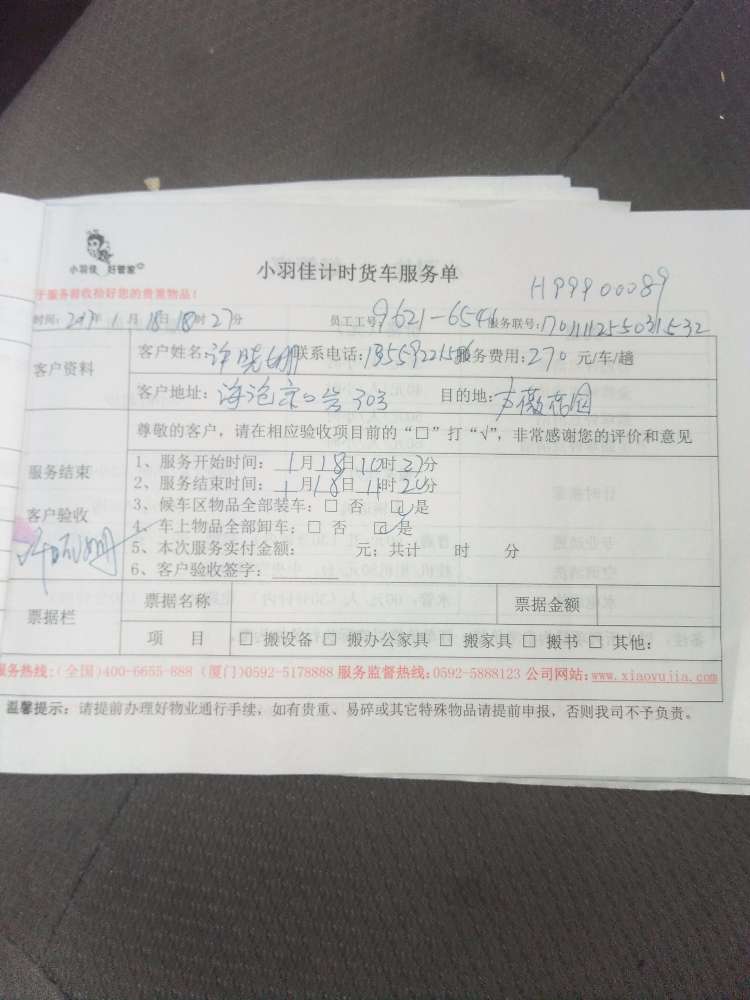 小羽佳 好管家
小羽佳计时货车服务单
H99900089
于服务前收拾好您的贵重物品!
时间: 2017年 1月 18日 18时 27分 员工工号 9621-6546 服务联号: 170111255031532
客户资料
客户姓名: 许晓 联系电话: 服务费用: 270 元/车/趟
客户地址: 海沧 303 目的地: 花园
尊敬的客户,请在相应验收项目前的“□”打“√”,非常感谢您的评价和意见
服务结束
客户验收
1、服务开始时间: 1月18日10时27分
2、服务结束时间: 1月18日11时20分
3、候车区物品全部装车: □ 否 ☑ 是
4、车上物品全部卸车: □ 否 ☑ 是
5、本次服务实付金额: 元; 共计 时 分
6、客户验收签字:
票据栏
票据名称 票据金额
项 目 □ 搬设备 □ 搬办公家具 □ 搬家具 □ 搬书 □ 其他:
服务热线:(全国)400-6655-888 (厦门)0592-5178888 服务监督热线:0592-5888123 公司网站:www.xiaoyujia.com
温馨提示: 请提前办理好物业通行手续,如有贵重、易碎或其它特殊物品请提前申报,否则我司不予负责。